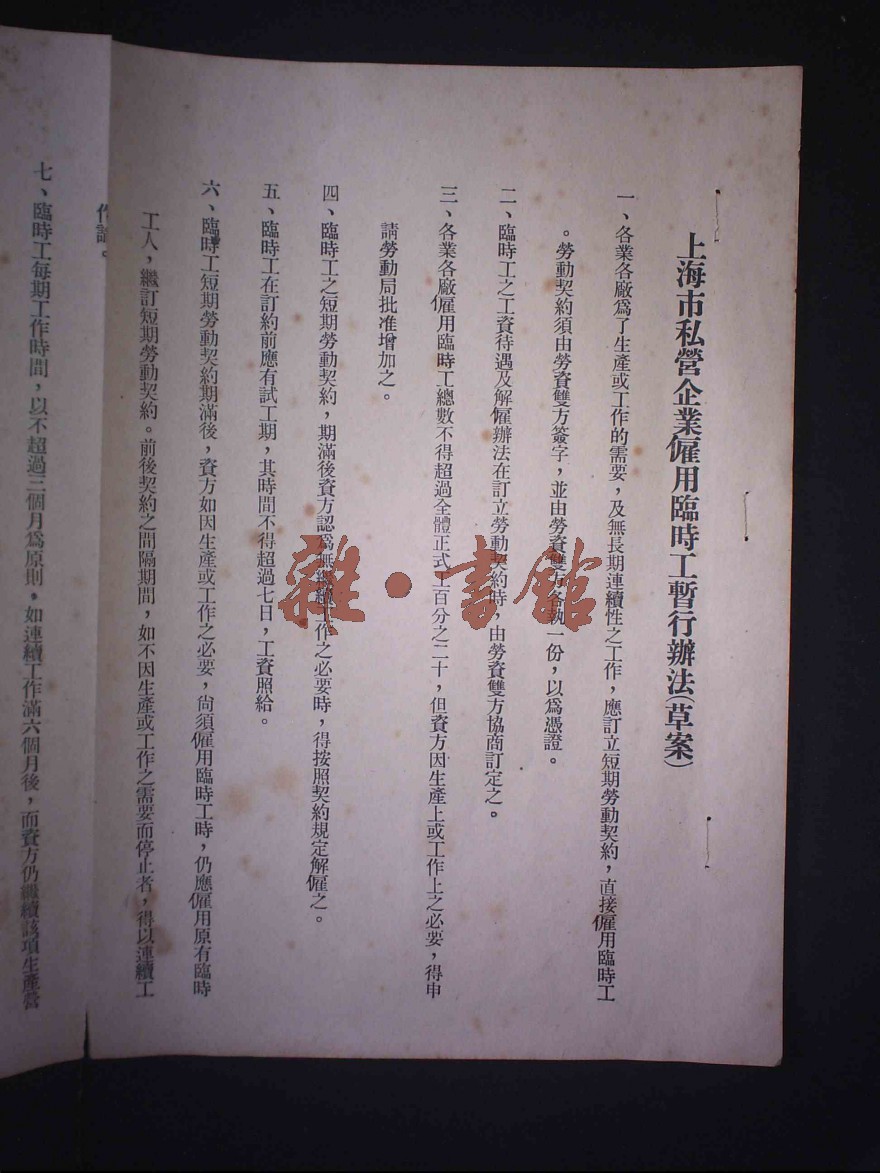 上海市私營企業僱用臨時工暫行辦法(草案)
一、各業各廠爲了生產或工作的需要，及無長期連續性之工作，應訂立短期勞動契約，直接僱用臨時工
。勞動契約須由勞資雙方簽字，並由勞資雙方各執一份，以爲憑證。
二、臨時工之工資待遇及解僱辦法在訂立勞動契約時，由勞資雙方協商訂定之。
三、各業各廠僱用臨時工總數不得超過全體正式工百分之二十，但資方因生產上或工作上之必要，得申
請勞動局批准增加之。
四、臨時工之短期勞動契約，期滿後資方認爲無繼續工作之必要時，得按照契約規定解僱之。
五、臨時工在訂約前應有試工期，其時間不得超過七日，工資照給。
六、臨時工短期勞動契約期滿後，資方如因生產或工作之必要，尙須僱用臨時工時，仍應僱用原有臨時
工人，繼訂短期勞動契約。前後契約之間隔期間，如不因生產或工作之需要而停止者，得以連續工
作論。
七、臨時工每期工作時間，以不超過三個月爲原則，如連續工作滿六個月後，而資方仍繼續該項生產營
雜·書館